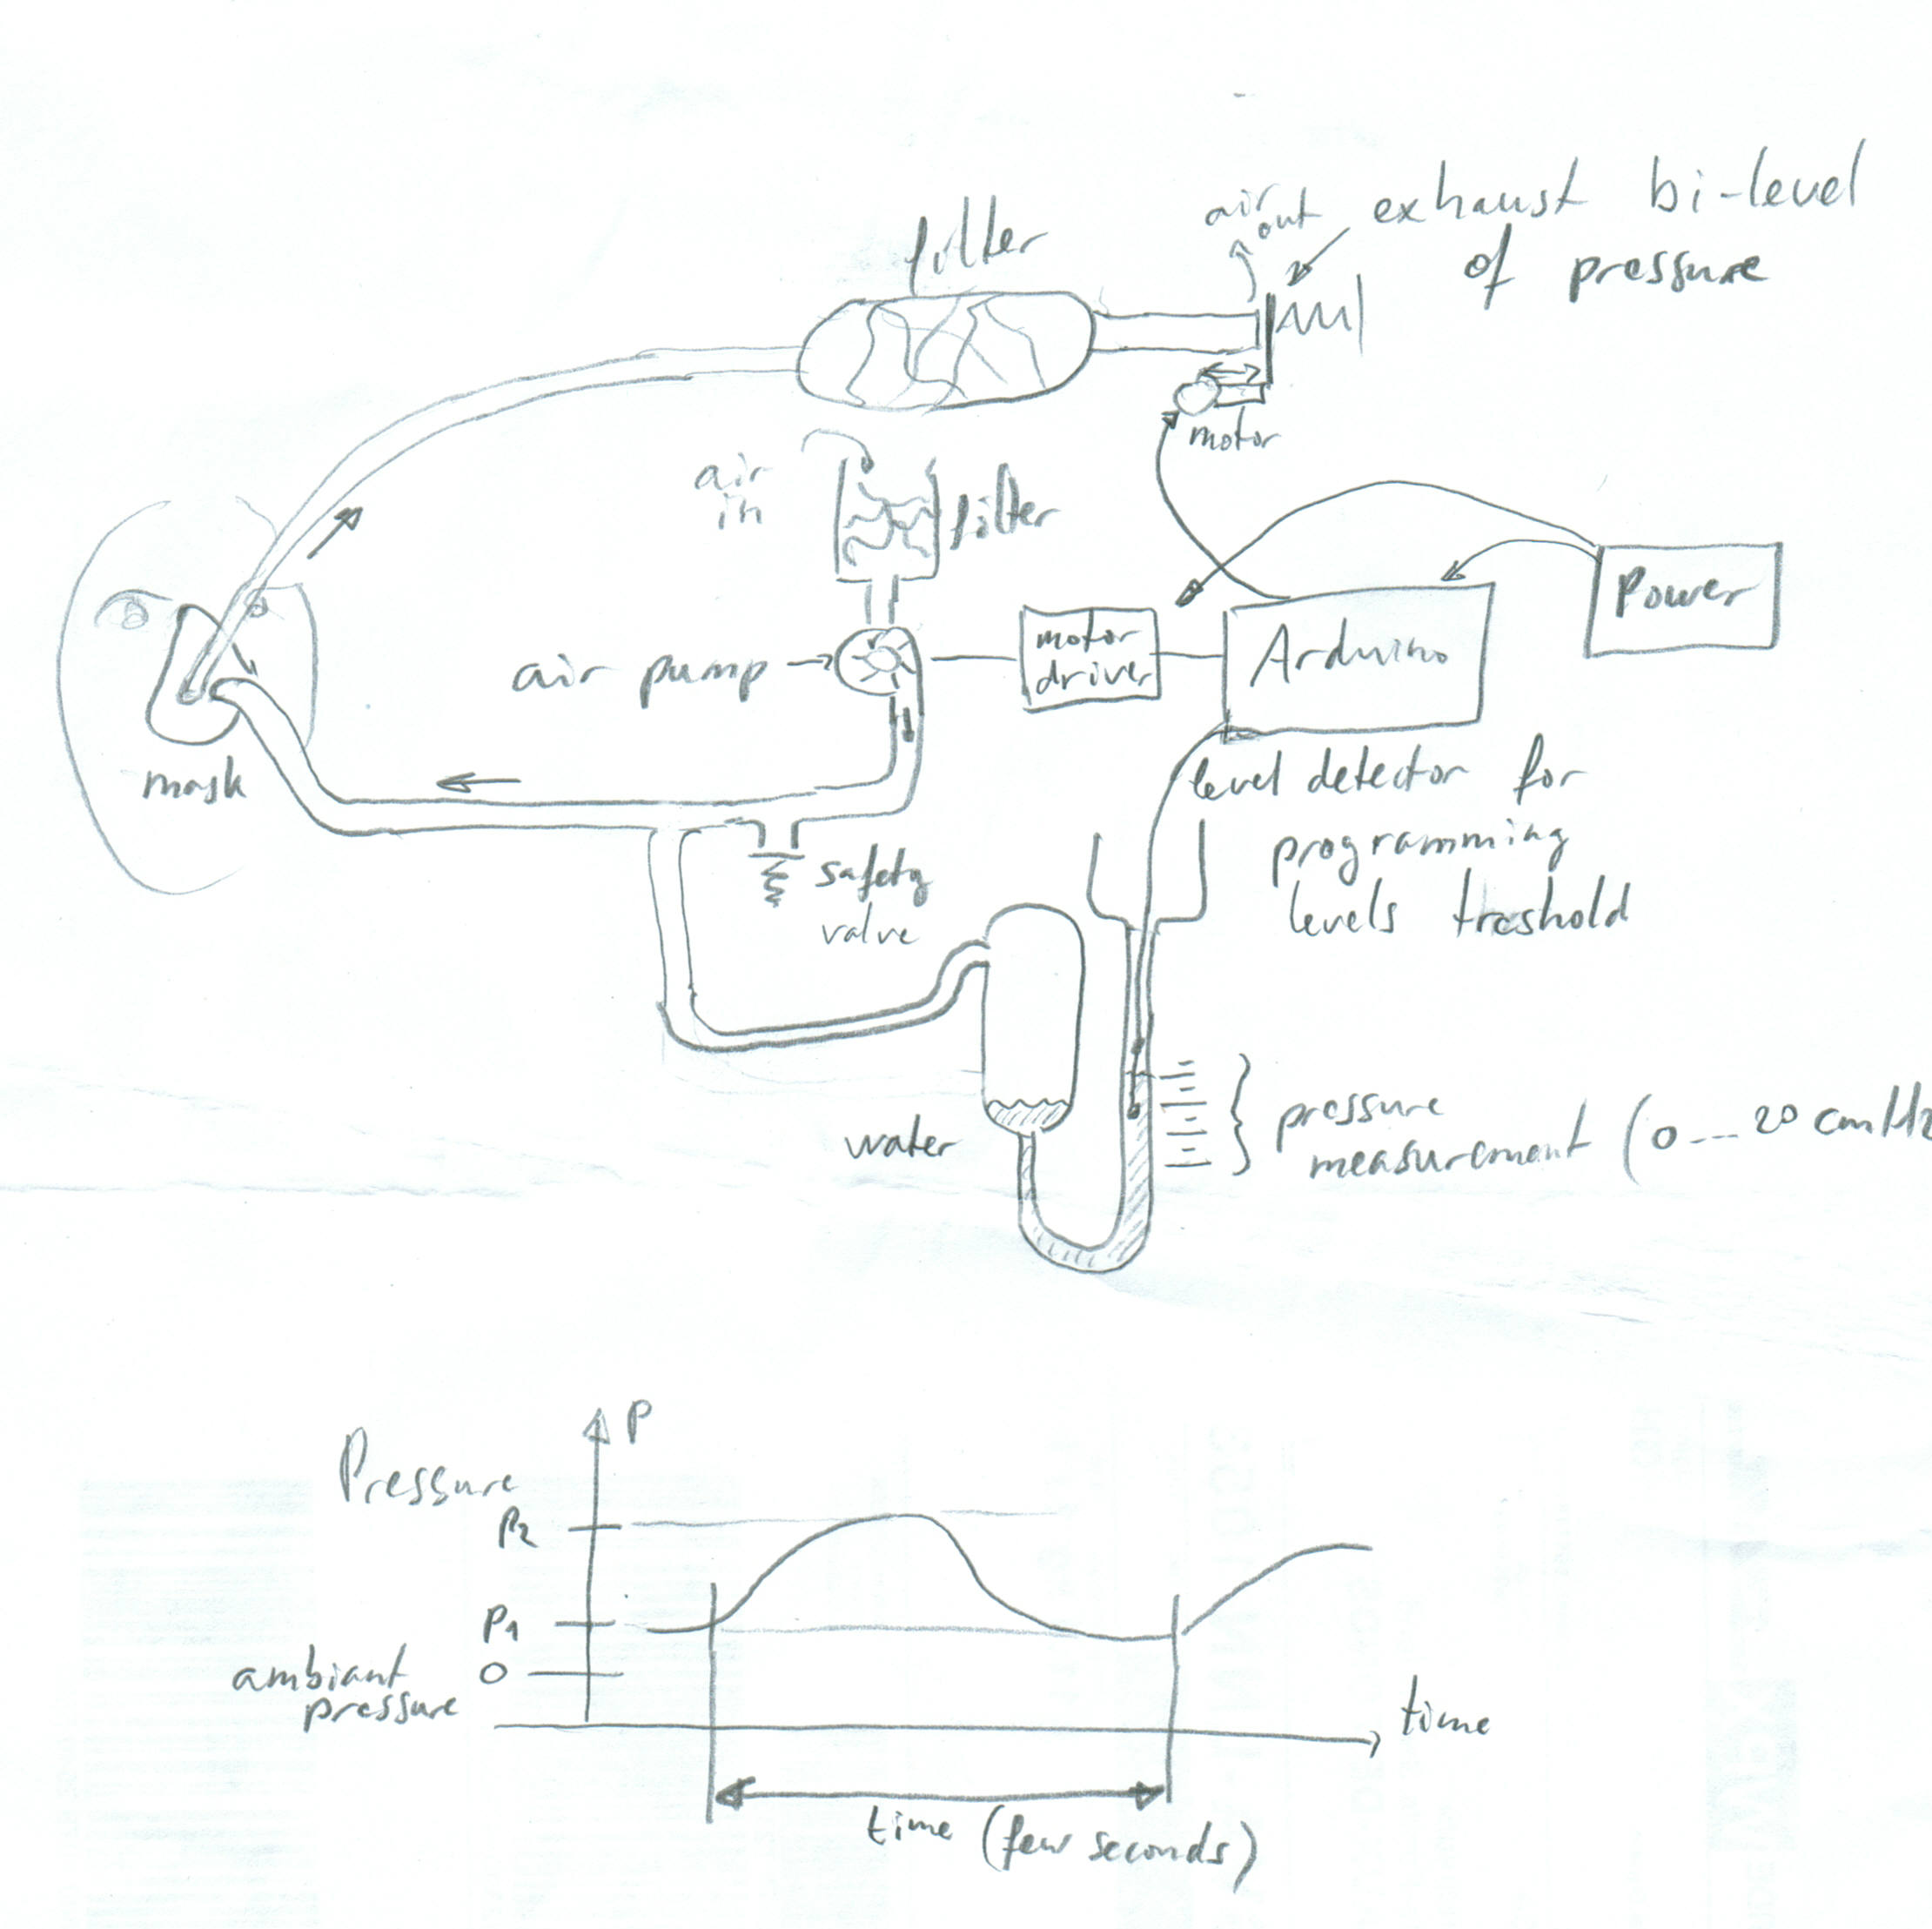 filter
air
out
exhaust bi-level
of pressure
motor
air
in
filter
Power
air pump
motor
driver
Arduino
mask
level detector for
programming
levels treshold
safety
valve
water
pressure
measurement (0---20 cmH2
P
Pressure
P2
P1
ambiant
pressure
0
time
time (few seconds)